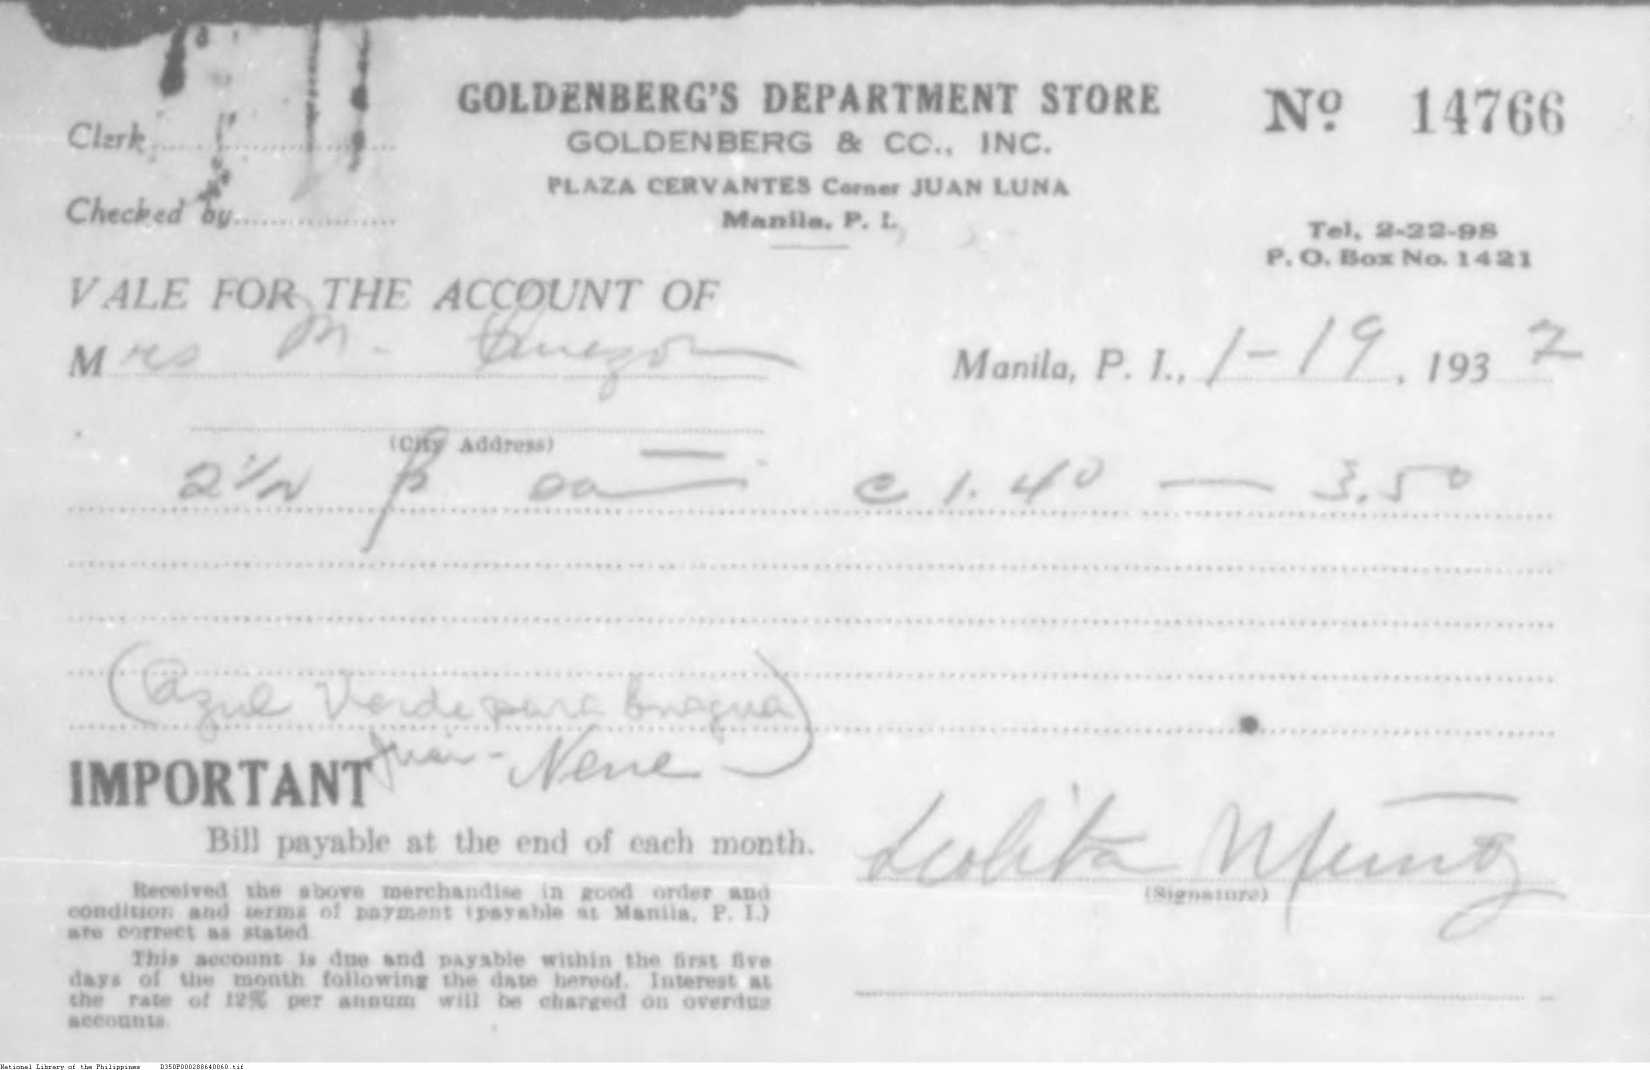 GOLDENBERG'S DEPARTMENT STORE
GOLDENBERG & CO., INC.
PLAZA CERVANTES Corner JUAN LUNA
Manila, P. I.
Nº 14766
Clerk
Checked by
Tel. 2-22-98
P. O. Box No. 1421
VALE FOR THE ACCOUNT OF
Mrs M.
Manila, P. I., 1-19, 1932
(City Address)
2 1/2 1.40 — 3.50
(Azul Verde para Enagua)
Nene
IMPORTANT
Bill payable at the end of each month.
Received the above merchandise in good order and
condition and terms of payment (payable at Manila, P. I.)
are correct as stated.
This account is due and payable within the first five
days of the month following the date hereof. Interest at
the rate of 12% per annum will be charged on overdue
accounts.
Lolita Muñoz
(Signature)
National Library of the Philippines D350P000288640060.tif